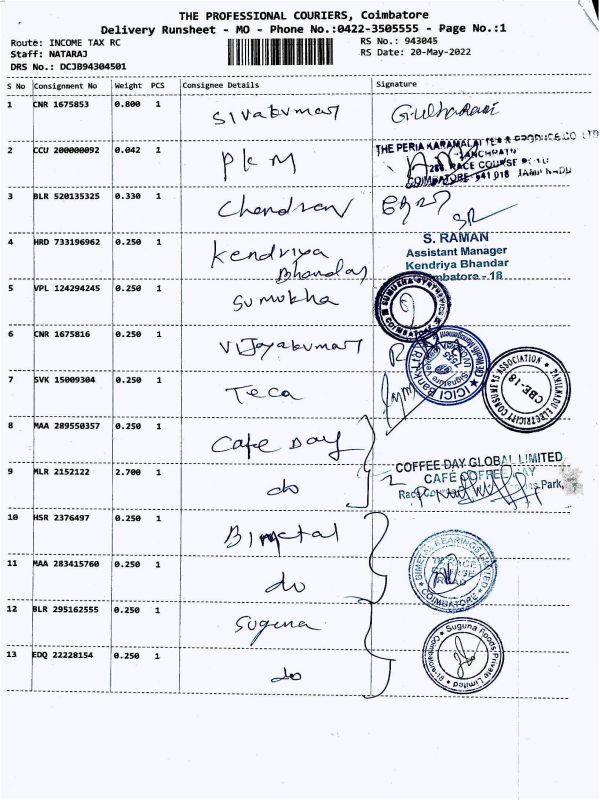 THE PROFESSIONAL COURIERS, Coimbatore
Delivery Runsheet - MO - Phone No.:0422-3505555 - Page No.:1
Route: INCOME TAX RC RS No.: 943045
Staff: NATARAJ RS Date: 20-May-2022
DRS No.: DCJB94304501
S No Consignment No Weight PCS Consignee Details Signature
1 CNR 1675853 0.800 1 Sivakumar
2 CCU 200000092 0.042 1 PKM
THE PERIA KARAMALAI TEA & PRODUCE CO LTD
286, RACE COURSE
COIMBATORE - 641 018
3 BLR 520135325 0.330 1 Chandran
4 HRD 733196962 0.250 1 Kendriya
Bhandar
S. RAMAN
Assistant Manager
Kendriya Bhandar
5 VPL 124294245 0.250 1 Sumukha
COIMBATORE
6 CNR 1675816 0.250 1 Vijayakumar
ICICI Bank
7 SVK 15009304 0.250 1 Teca
TAMILNADU ELECTRICITY CONSUMERS ASSOCIATION
CBE-18
8 MAA 289550357 0.250 1 Cafe Day
9 MLR 2152122 2.700 1 do
COFFEE DAY GLOBAL LIMITED
CAFÉ COFFEE DAY
Park,
10 HSR 2376497 0.250 1 Bimetal
11 MAA 283415760 0.250 1 do
BIMETAL BEARINGS LIMITED
COIMBATORE
12 BLR 295162555 0.250 1 Suguna
13 EDQ 22228154 0.250 1 do
Suguna Foods Private Limited
Coimbatore-18